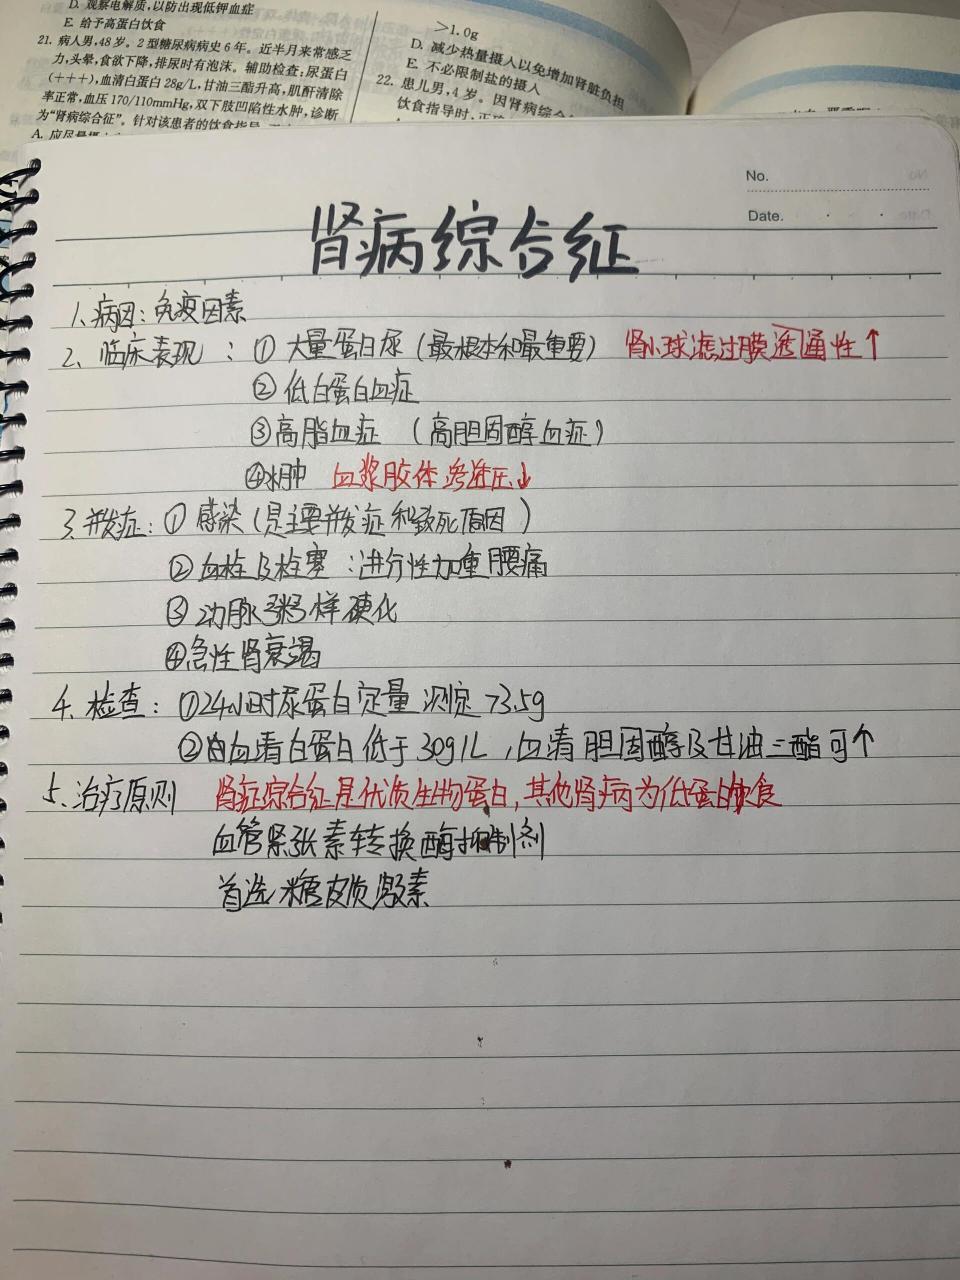 D. 观察电解质，以防出现低钾血症
E. 给予高蛋白饮食
21. 病人男，48岁。2型糖尿病病史6年。近半月来常感乏
力，头晕，食欲下降，排尿时有泡沫。辅助检查：尿蛋白
(+++)，血清白蛋白28g/L，甘油三酯升高，肌酐清除
率正常，血压170/110mmHg，双下肢凹陷性水肿，诊断
为“肾病综合征”。针对该患者的饮食指导
A. 应尽量
>1.0g
D. 减少热量摄入以免增加肾脏负担
E. 不必限制盐的摄入
22. 患儿男，4岁。因肾病综合
饮食指导时，正确
No.
Date.
肾病综合征
1、病因：免疫因素
2、临床表现：①大量蛋白尿（最根本和最重要） 肾小球滤过膜透通性↑
②低白蛋白血症
③高脂血症（高胆固醇血症）
④水肿 血浆胶体渗透压↓
3、并发症：①感染（是主要并发症和致死原因）
②血栓及栓塞：进行性加重腰痛
③动脉粥样硬化
④急性肾衰竭
4、检查：①24小时尿蛋白定量测定>3.5g
②血清白蛋白低于30g/L，血清胆固醇及甘油三酯可↑
5、治疗原则 肾症综合征是优质生物蛋白，其他肾病为低蛋白饮食
血管紧张素转换酶抑制剂
首选糖皮质激素